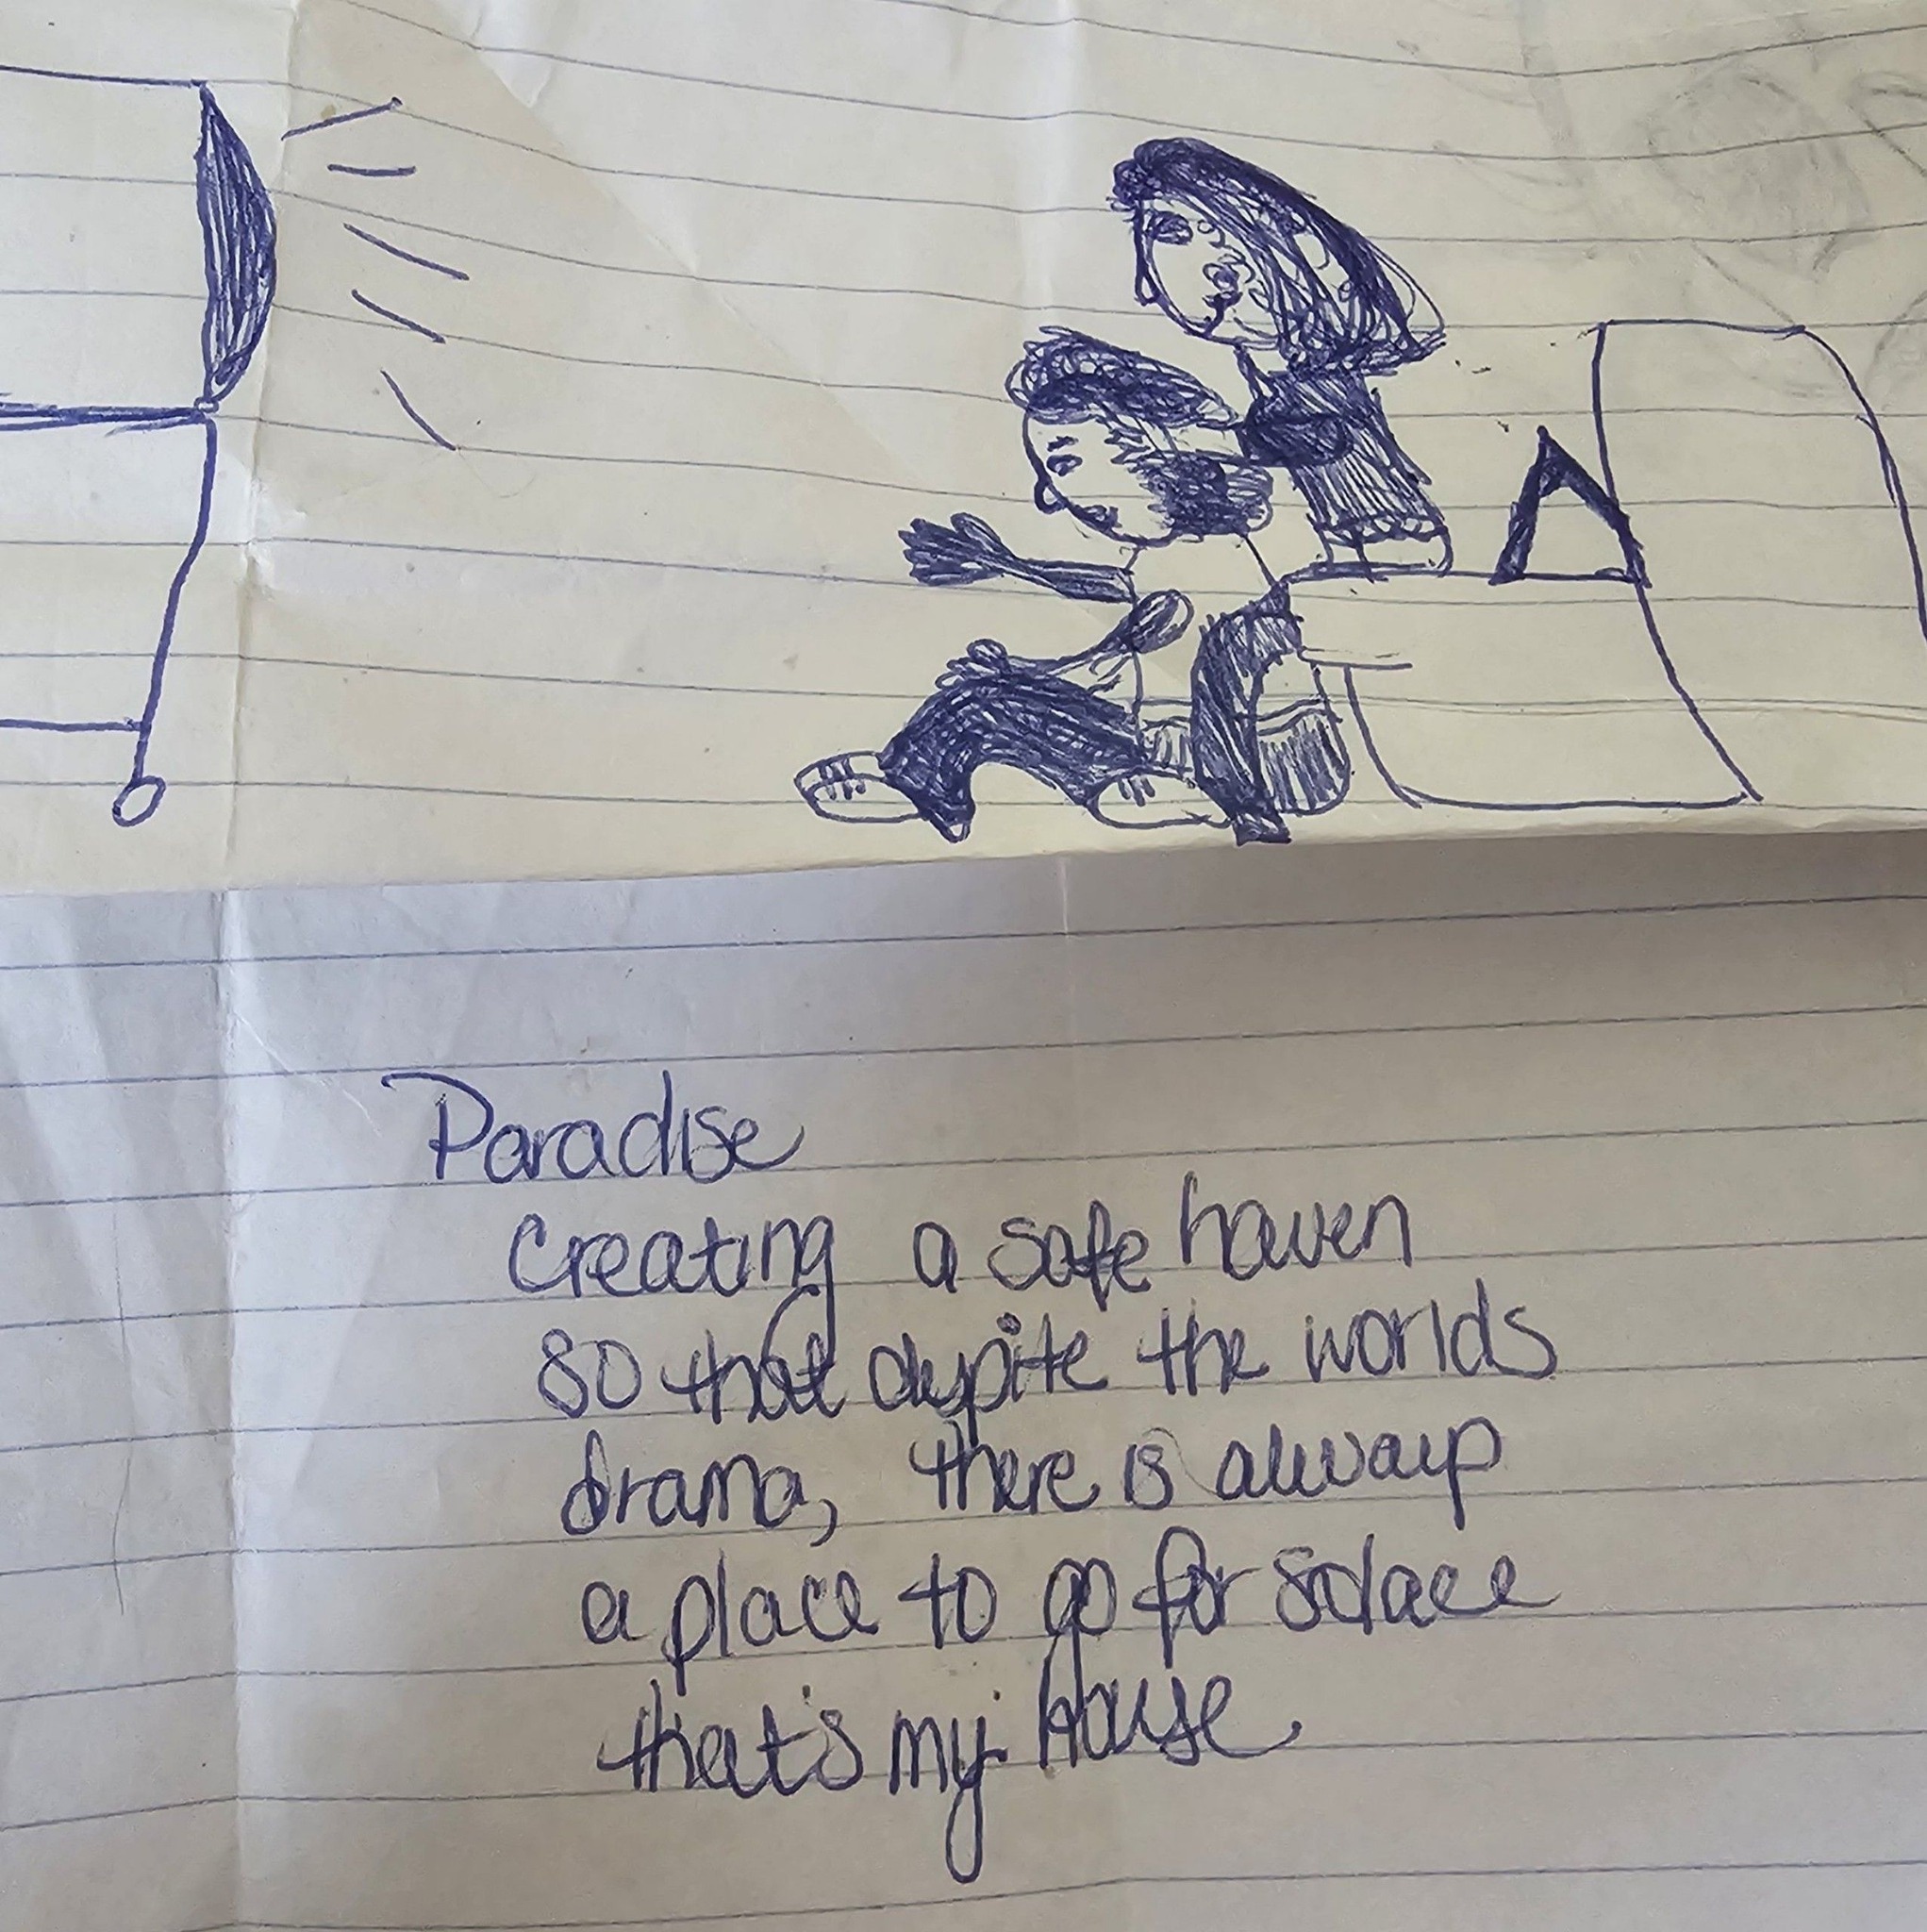 Paradise
creating a safe haven
so that despite the worlds
drama, there is always
a place to go for solace
that's my house